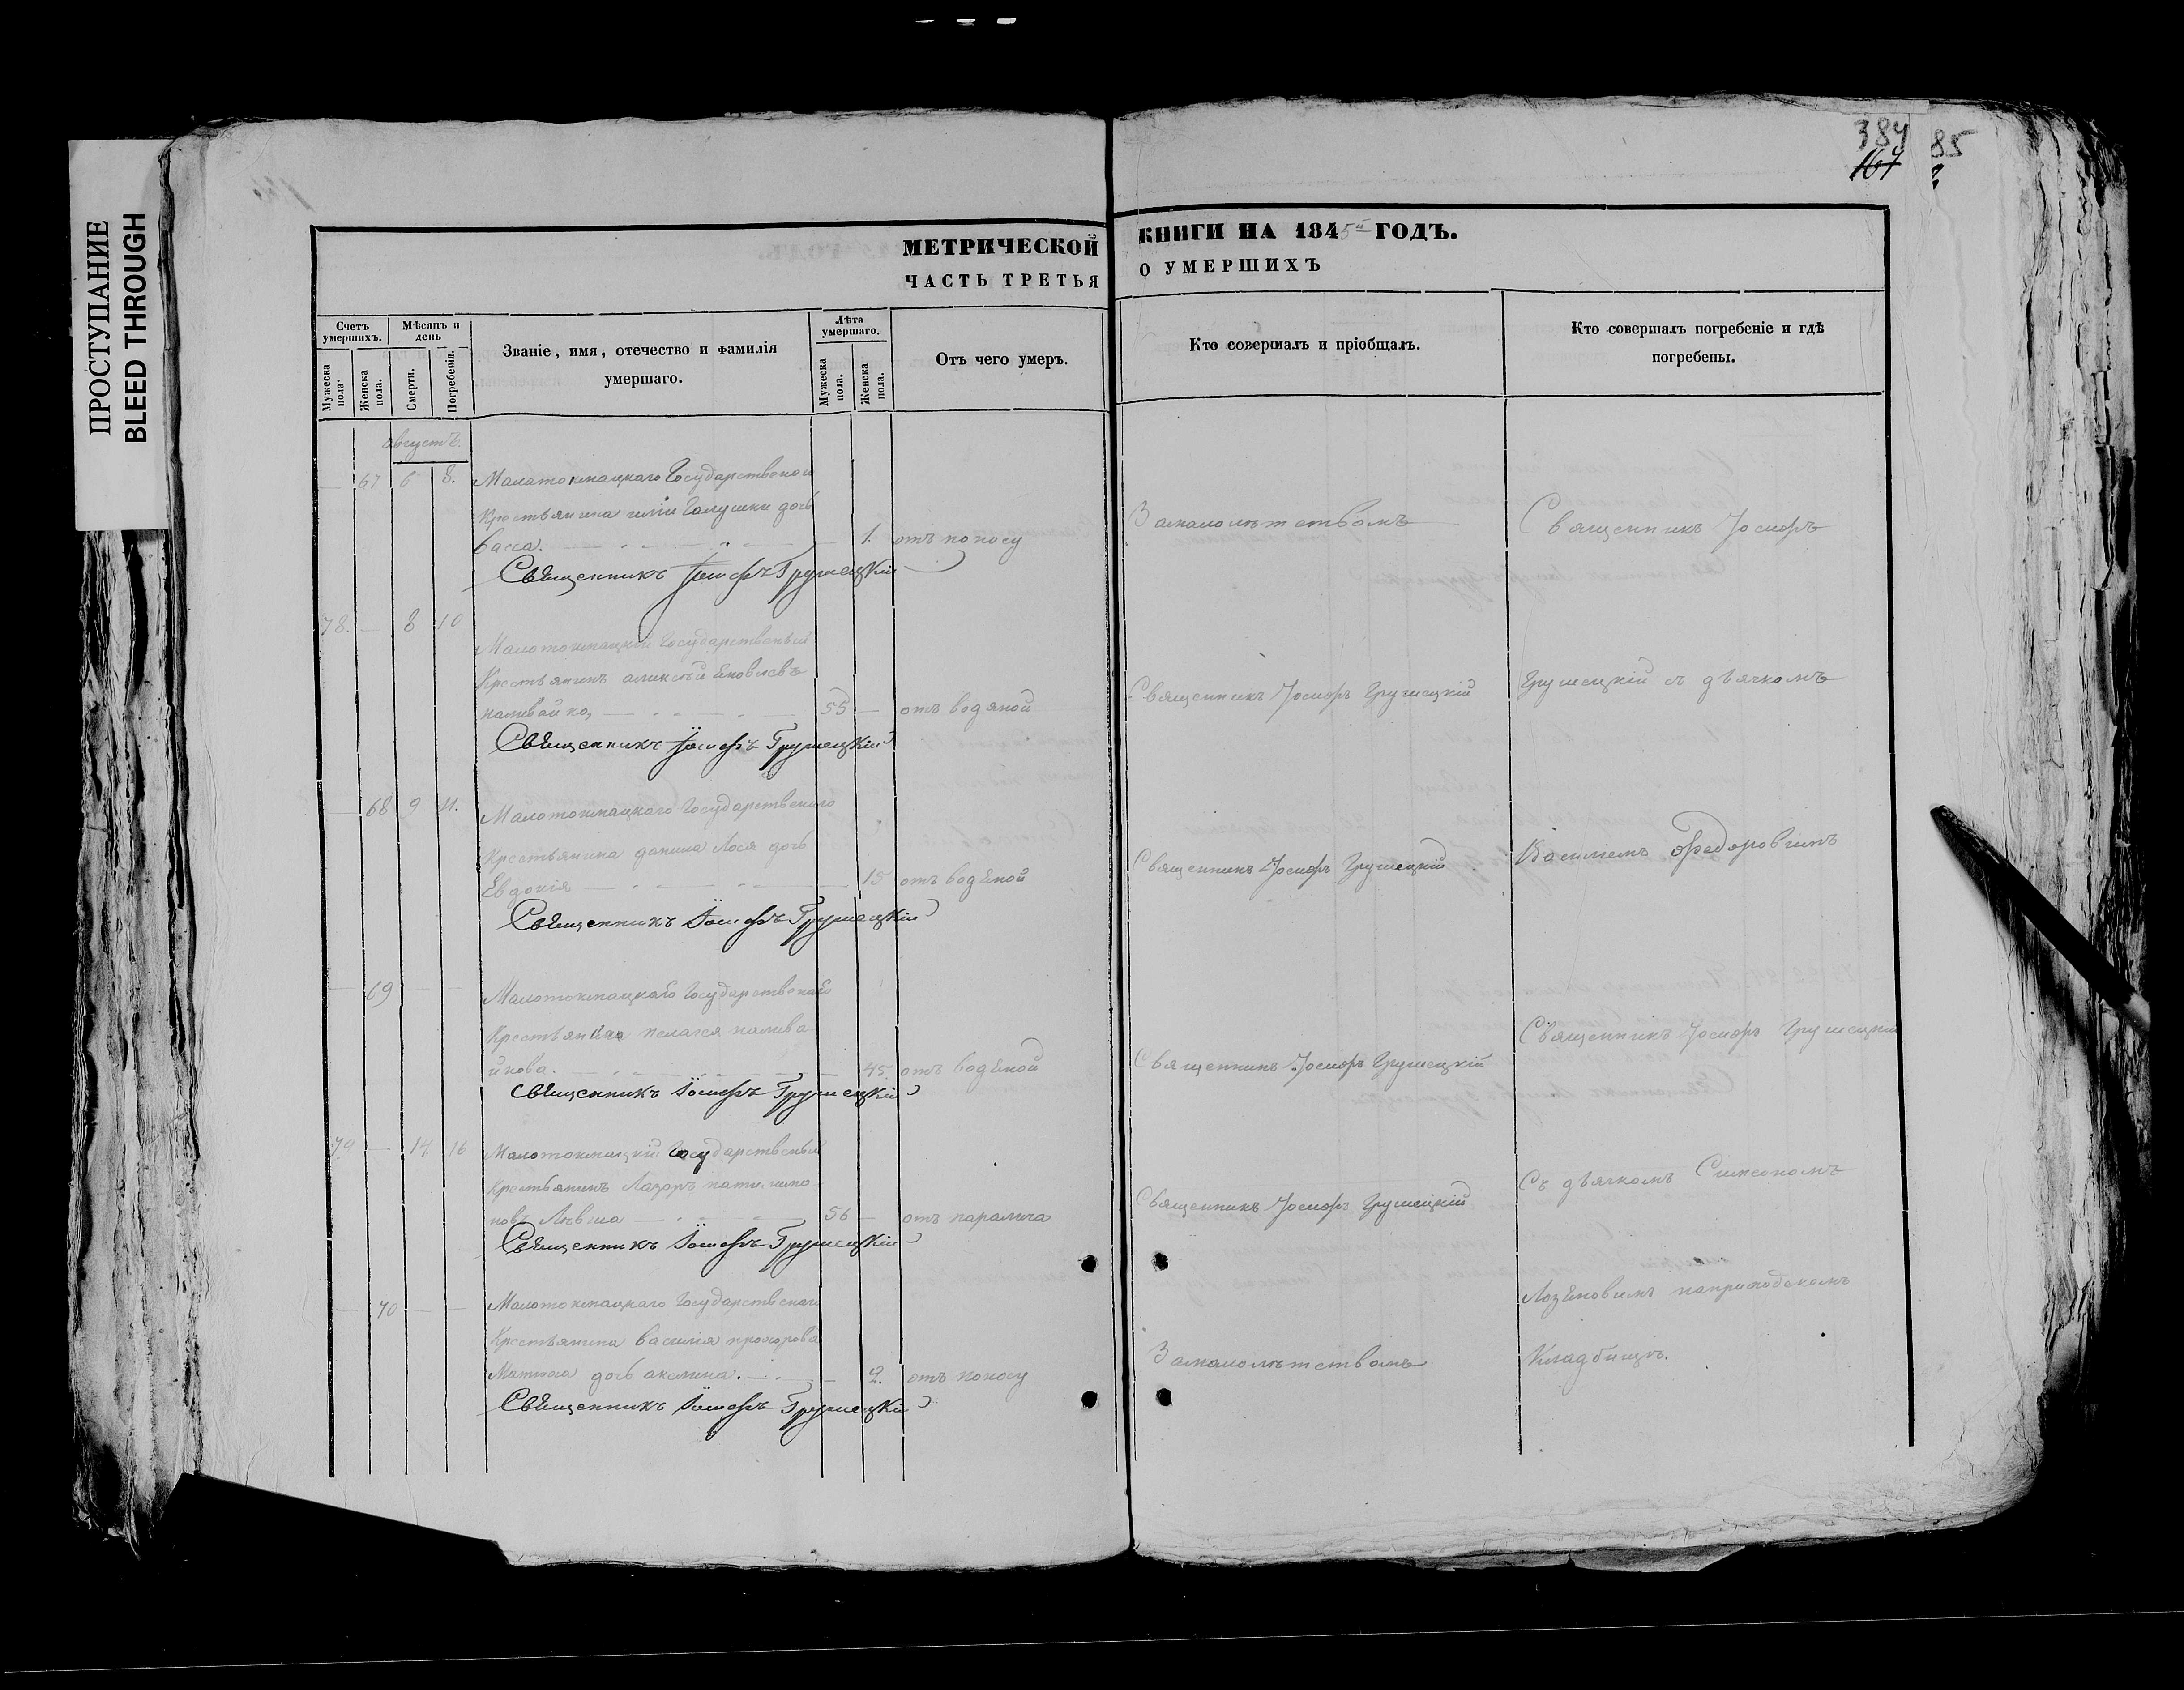 ПРОСТУПАНИЕ
BLEED THROUGH
384
167
85
МЕТРИЧЕСКОЙ КНИГИ НА 1845й ГОДЪ.
ЧАСТЬ ТРЕТЬЯ О УМЕРШИХЪ
Счетъ умершихъ.
Мужеска пола.
Женска пола.
Мѣсяцъ и день
Смерти.
Погребенія.
Званіе, имя, отечество и фамилія умершаго.
Лѣта умершаго.
Мужеска пола.
Женска пола.
Отъ чего умеръ.
Кто совершалъ и пріобщалъ.
Кто совершалъ погребеніе и гдѣ погребены.
августъ.
— 67 6 8. Малотокмацкаго Государственаго
Крестьянина Галушки дочь
Васса. 1. отъ поносу
Замалолѣтствомъ
Священникъ Іосифъ
Священникъ Іосифъ Грушецкій
78. — 8 10
Малотокмацкій Государственый
Крестьянинъ аликсѣй Яковлевъ
наливайко, 55 — отъ водяной
Священникъ Іосифъ Грушецкій
Грушецкій съ дьячкомъ
Священникъ Іосифъ Грушецкій
— 68 9 11. Малотокмацкаго Государственаго
Крестьянина данила Лося дочь
Евдокія 15 отъ водяной
Священникъ Іосифъ Грушецкій
Василіемъ Федоровимъ
Священникъ Іосифъ Грушецкій
— 69 — — Малотокмацкаго Государственаго
Крестьянина пелагея налива
йкова. 45. отъ водяной
Священникъ Іосифъ Грушецкій
Священникъ Іосифъ Грушецкій
Священникъ Іосифъ Грушецкій
79 — 14 16 Малотокмацкій Государственый
Крестьянинъ Лазоръ
56 — отъ паралича
Священникъ Іосифъ Грушецкій
Съ дьячкомъ Симеономъ
Священникъ Іосифъ Грушецкій
— 70 — — Малотокмацкаго Государственаго
Крестьянина Василія прохорова
дочь акилина. 2. отъ поносу
Замалолѣтствомъ
Лозяновимъ наприходскомъ
Кладбищѣ.
Священникъ Іосифъ Грушецкій